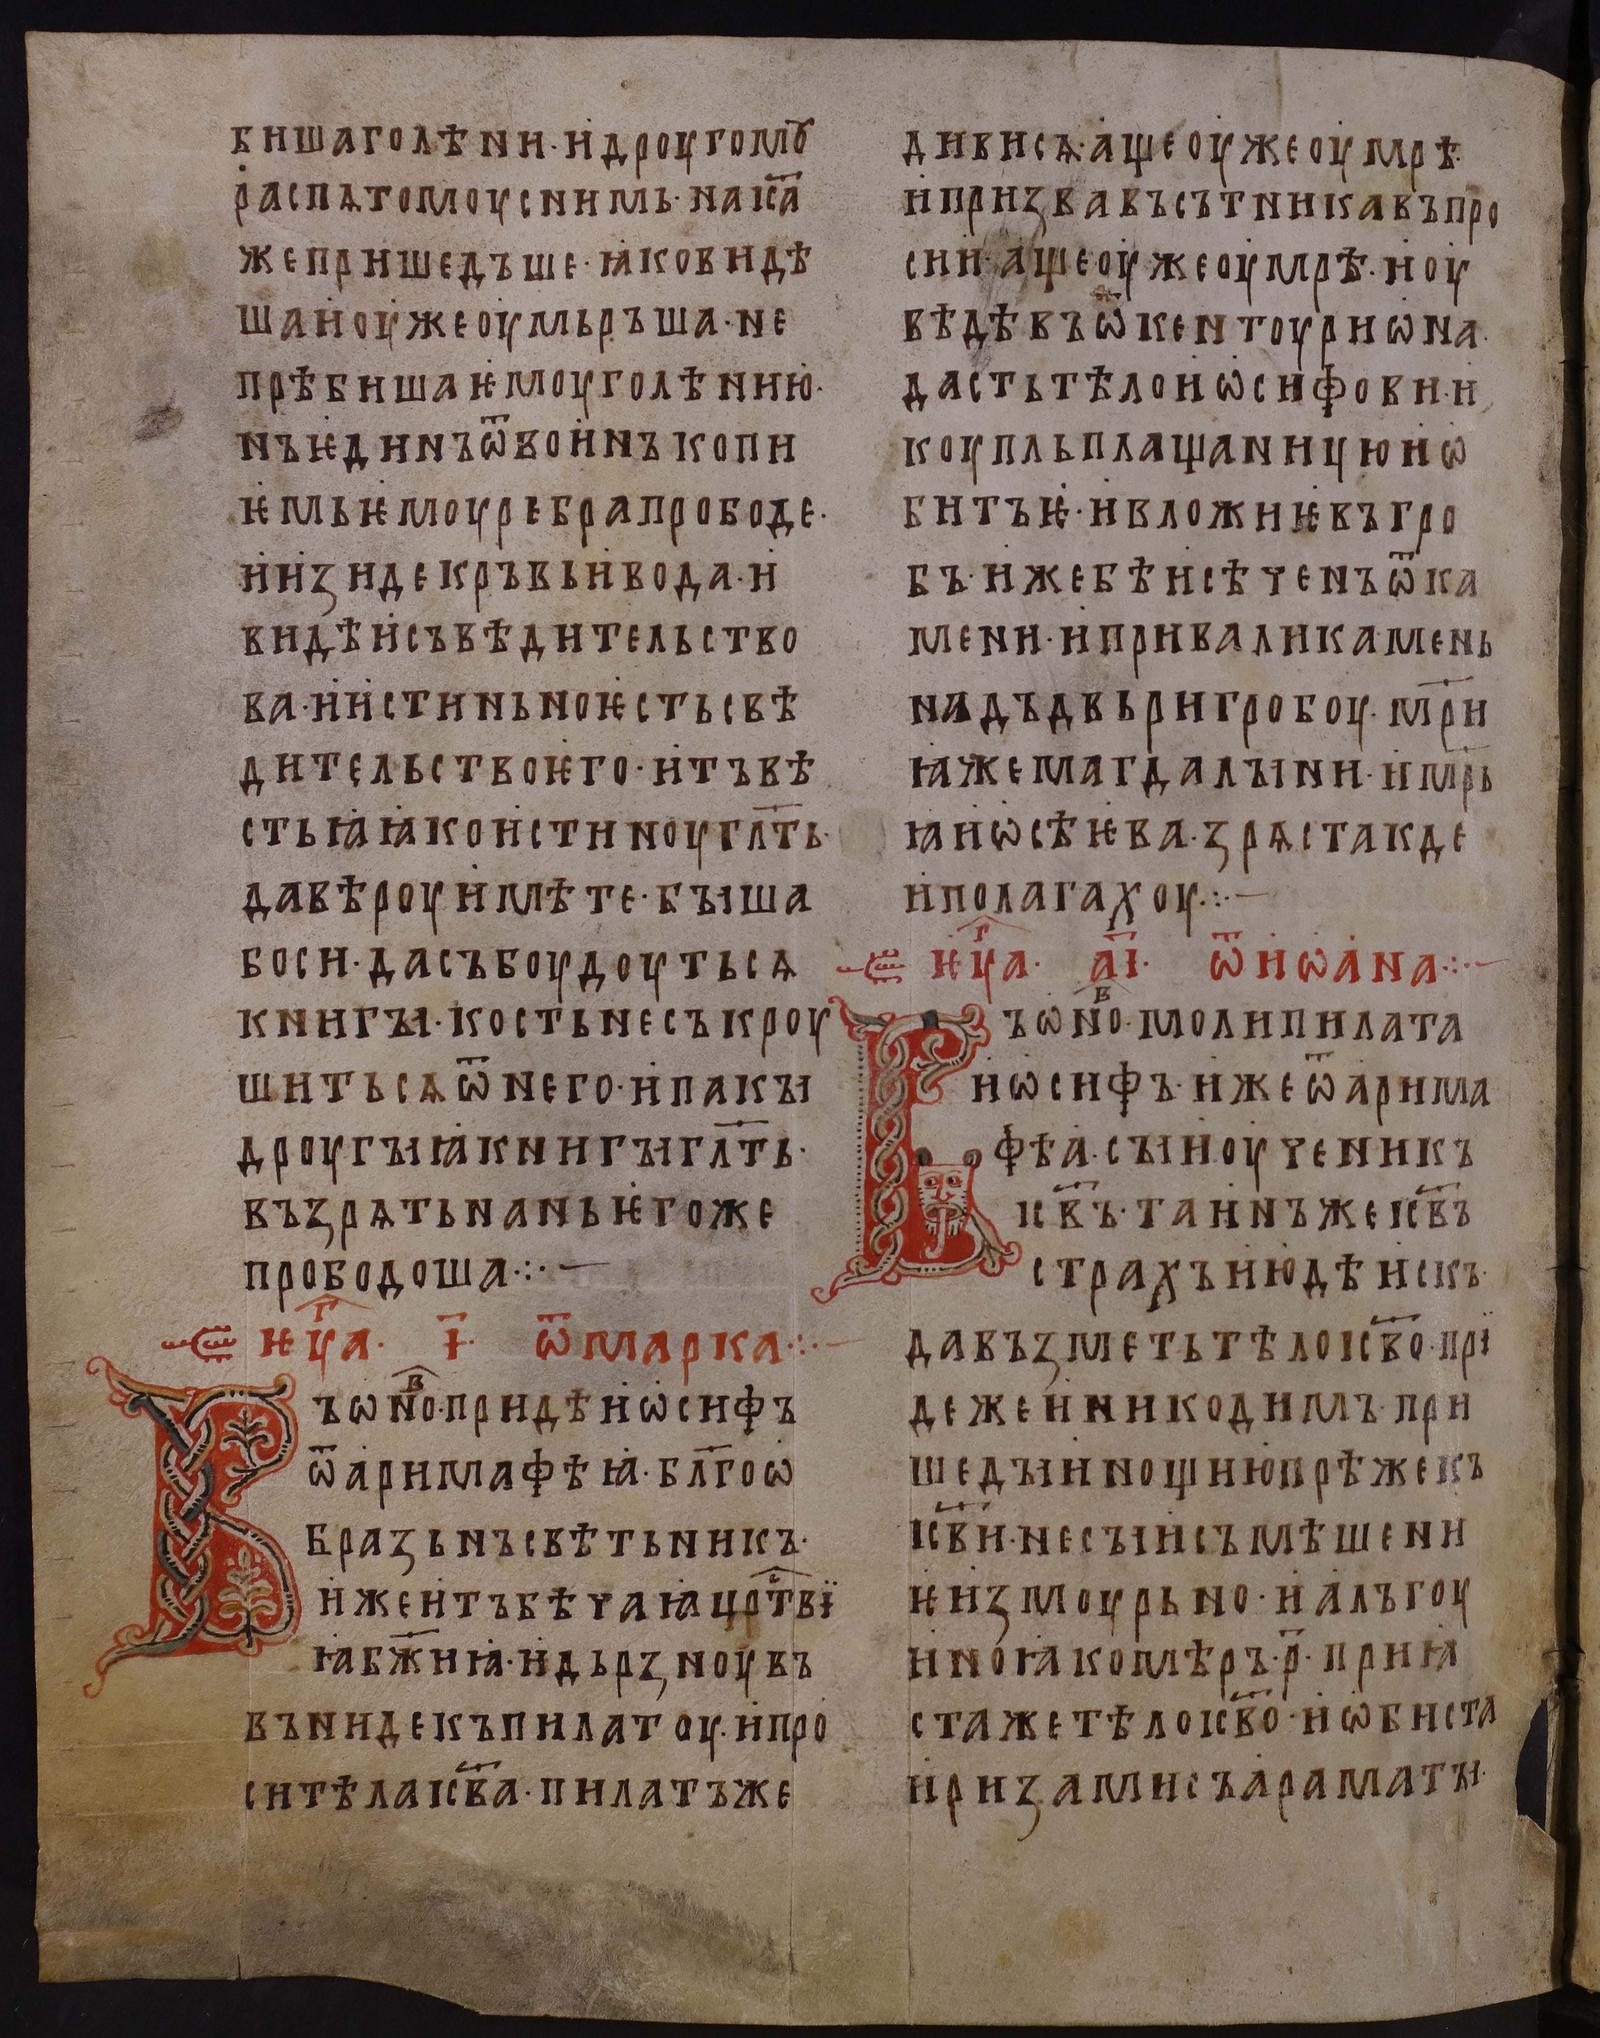 бишаголѣни·идроугомꙋ
распѧтомоусънимь·наіс҃а
жепришедъше·ꙗковидѣ
шаиоужеоумьръша·не
прѣбишаѥмоуголѣнию·
нъѥдинъѿвоинъкопи
ѥмьѥмоуребрапрободе·
иизидекръвьивода·и
видѣисъвѣдительство
ва·иистиньноѥстьсвѣ
дительствоѥго·итъвѣ
стьꙗꙗкоистиноугл҃ть·
давѣроуимѣте·быша
боси·дасъбоудоутьсѧ
книгы·костьнесъкроу
шитьсѧѿнего·ипакы
дроугыꙗкнигыгл҃ть·
въꙁрѧтьнаньѥгоже
прободоша·:·—
ѥу҃га· і҃· ѿмарка·:·—
Въѡно·придѣиѡсифъ
ѿаримафѣꙗ·бл҃гоѡ
браꙁьнъсвѣтьникъ·
ижеитъбѣчаꙗцр҃ствї
ꙗбж҃иꙗ·идьрꙁноувъ
въниdекъпилатоу·ипро
ситѣлаіс҃ва·пилатъже
дивисѧ·аще оужеоумрѣ·
ипризвавъсътникавъпро
сии·ащеоужеоумрѣ·иоу
вѣдѣвъѡкентоуриѡна·
дастьтѣлоиѡсифови·и
коупльплащаницюиѡ
битъѥ·ивложиѥвъгро
бъ·ижебѣисѣченъѿка
мени·ипривалikamень
надъдвьригробоу·мр҃и
ꙗжемагдалыни·имр҃ь
ꙗиѡсѣѥва·ꙁрѧстакде
иполагахоу·:·—
ѥу҃га· аі҃· ѿиѡана·:·—
Въѡно·молипилата
иѡсифъ·ижеѿарима
фѣа·сыиоученикъ
іс҃въ·таинъжеіс҃въ
страхъиюдѣискъ·
давъꙁметьтѣлоіс҃во·прї
дежеиникодимъ·при
шедыинощиюпрѣжекъ
іс҃ви·несыисъмѣшени
ѥиꙁмоурьно·иалъгоу
иноꙗкомѣръ·р҃·приꙗ
стажетѣлоіс҃во·иѡбиста
иризамисъараматы·